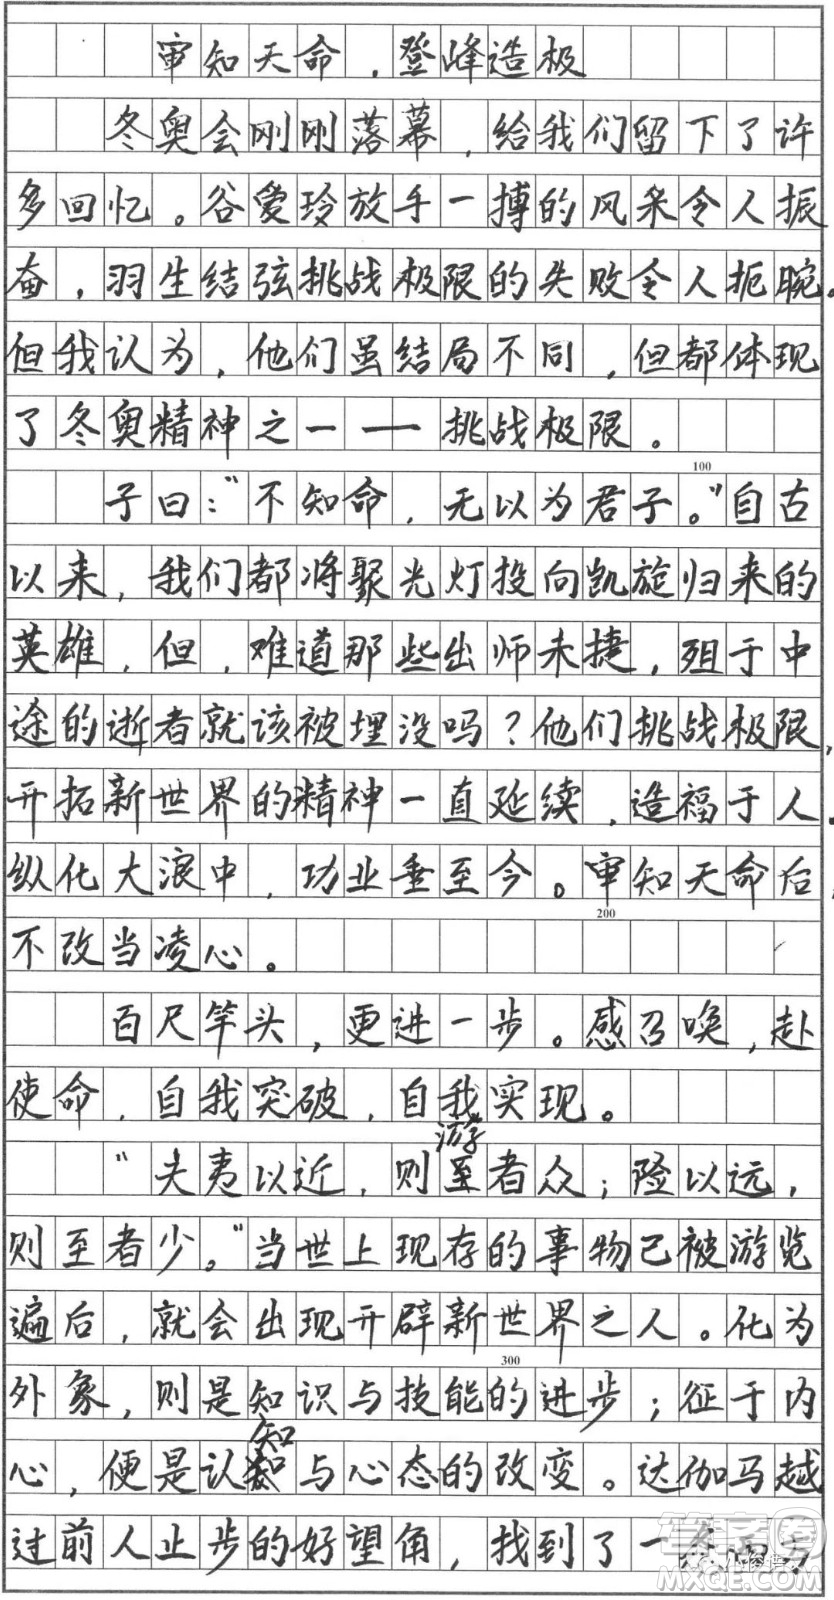 审知天命，登峰造极
冬奥会刚刚落幕，给我们留下了许
多回忆。谷爱玲放手一搏的风采令人振
奋，羽生结弦挑战极限的失败令人扼腕。
但我认为，他们虽结局不同，但都体现
了冬奥精神之一——挑战极限。
100
子曰：“不知命，无以为君子。”自古
以来，我们都将聚光灯投向凯旋归来的
英雄，但，难道那些出师未捷，殂于中
途的逝者就该被埋没吗？他们挑战极限，
开拓新世界的精神一直延续，造福于人。
纵化大浪中，功业垂至今。审知天命后，
200
不改当凌心。
百尺竿头，更进一步。感召唤，赴
使命，自我突破，自我实现。
游
“夫夷以近，则至者众；险以远，
则至者少。”当世上现存的事物已被游览
遍后，就会出现开辟新世界之人。化为
300
外象，则是知识与技能的进步；征于内
知
心，便是认知与心态的改变。达伽马越
过前人止步的好望角，找到了一条
答案圈
MXQE.COM